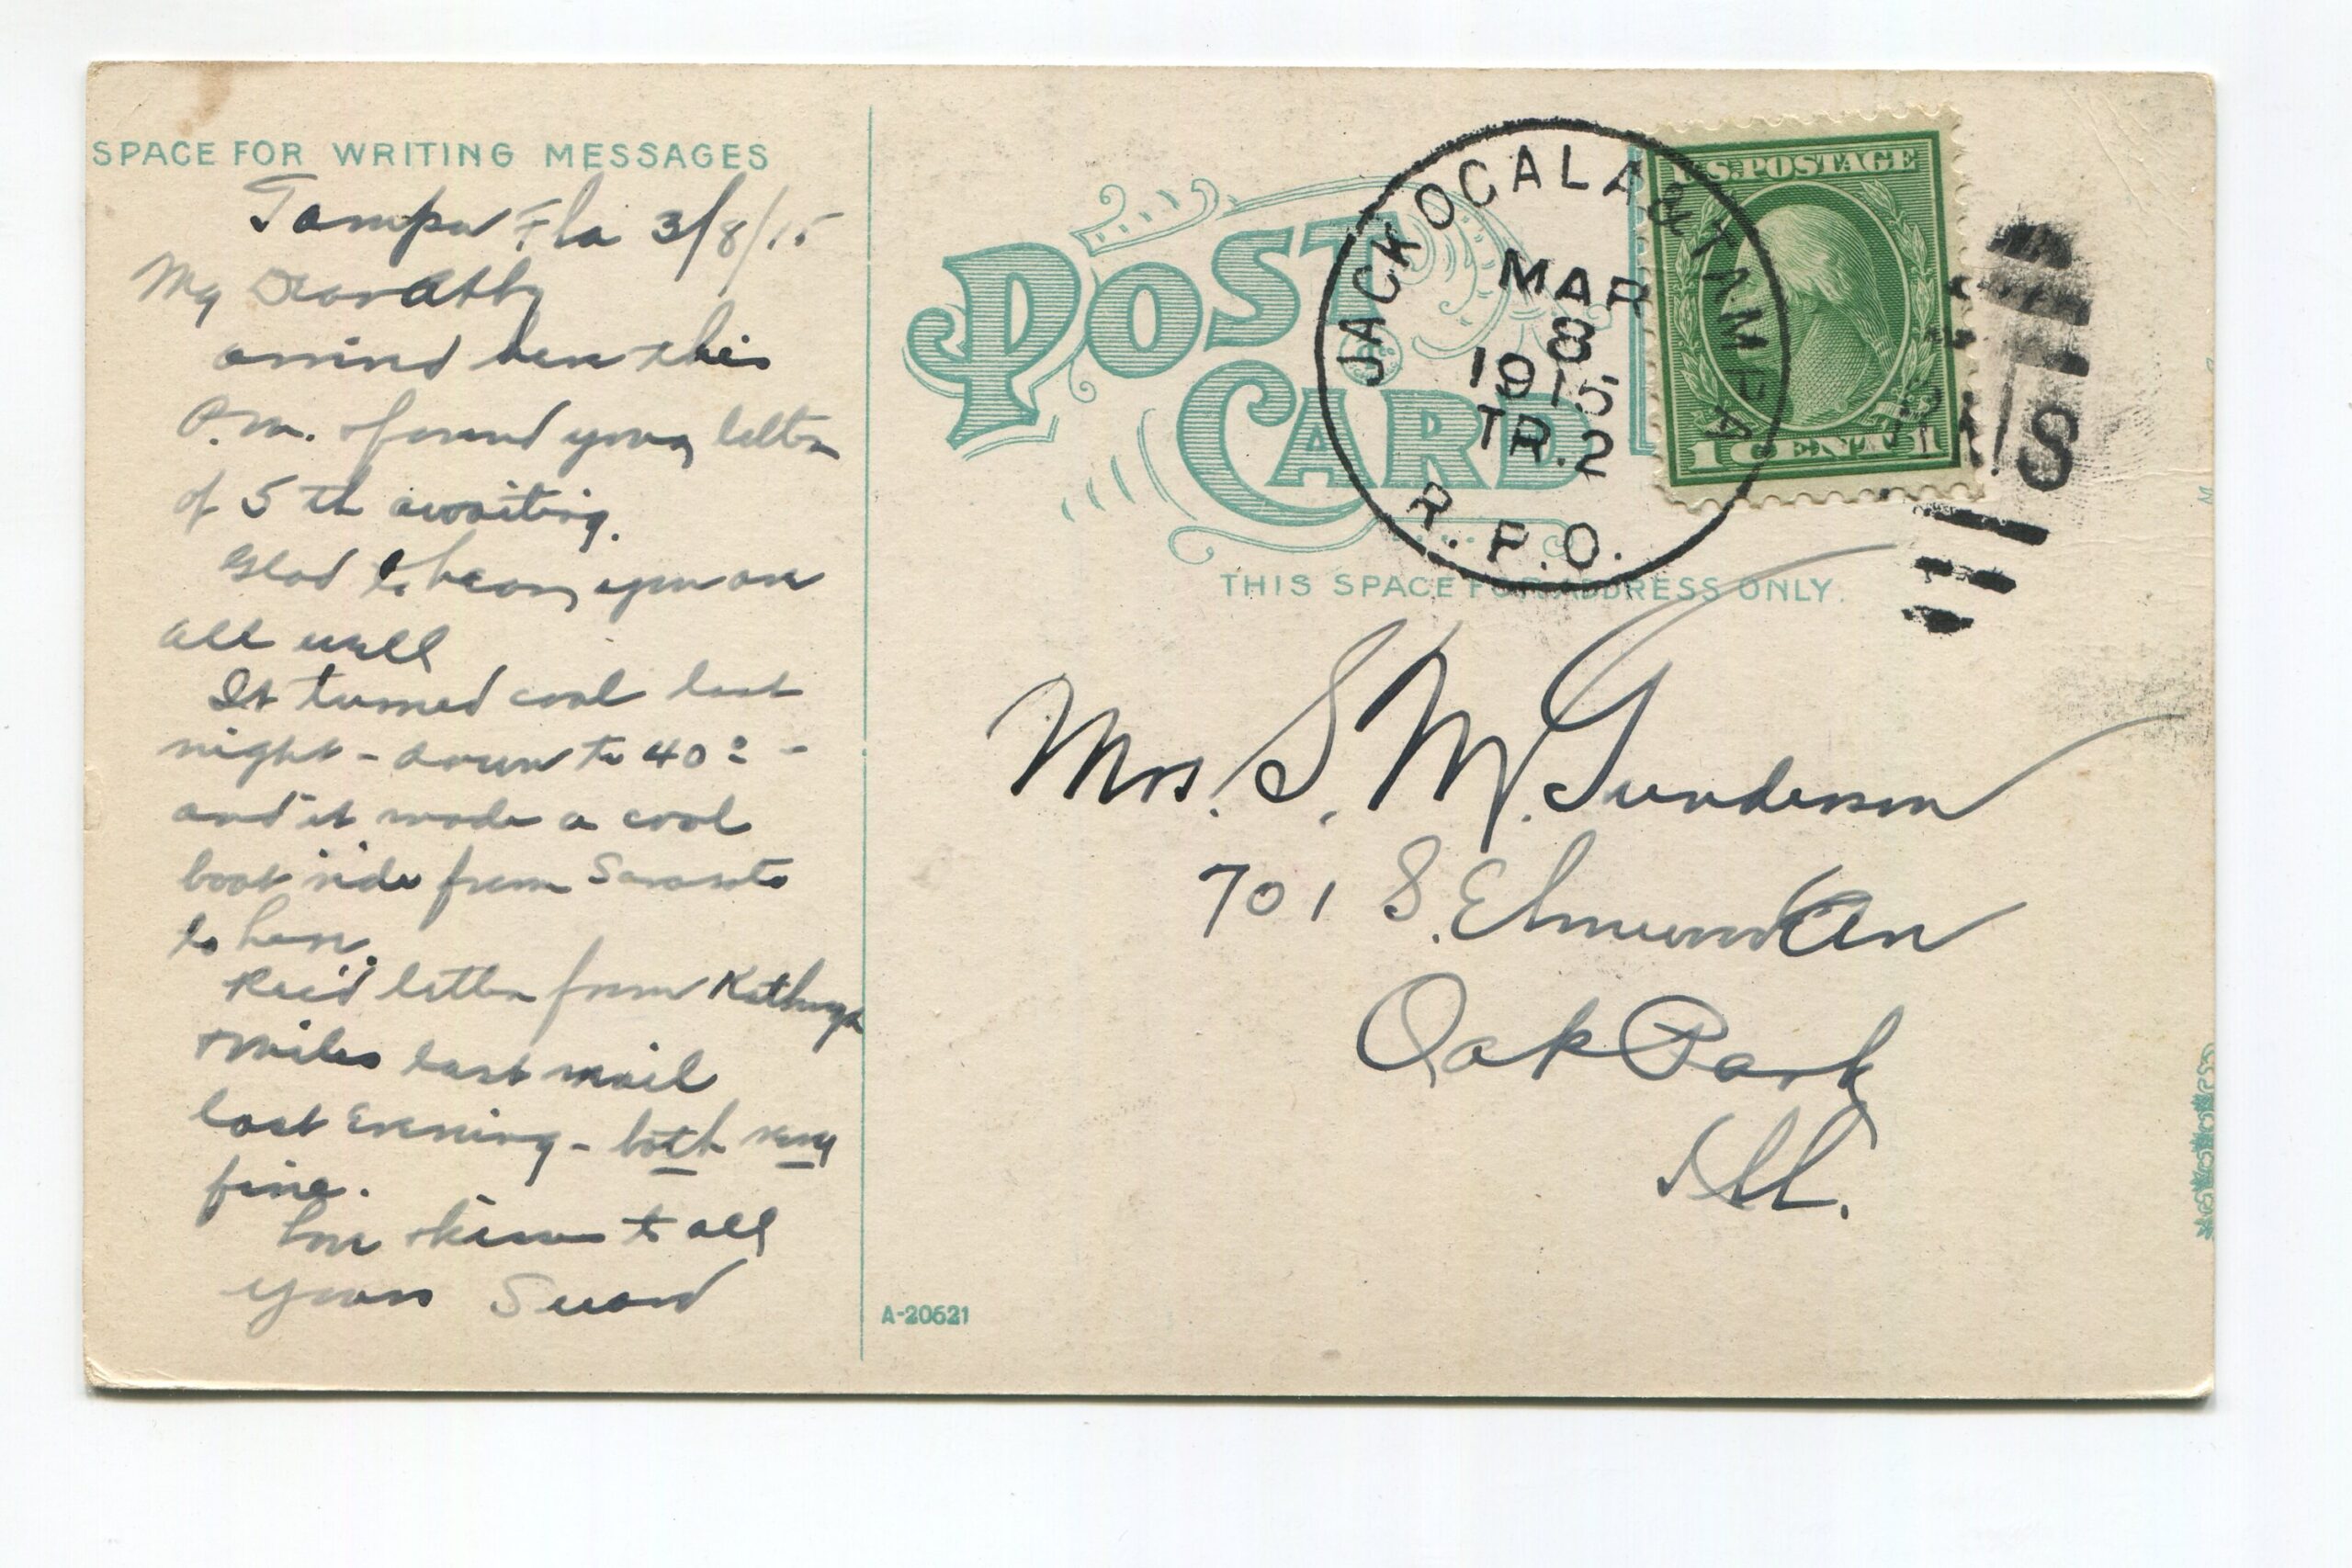 SPACE FOR WRITING MESSAGES
Tampa Fla 3/8/15
My Dear Abby
arrived here this
P.M. & found your letter
of 5th awaiting.
Glad to hear you are
all well
It turned cool last
night - down to 40° -
and it made a cool
boat ride from Sarasota
to here.
Rec'd letter from Kathryn
& Miles last mail
last Evening - both very
fine.
Love & kisses to all
yours Seward
POST CARD
THIS SPACE FOR ADDRESS ONLY.
JACK OCALA & TAMPA
MAR
8
1915
TR.2
R.P.O.
U.S.POSTAGE
1 CENT 1
S
Mrs. S. M. Gunderson
701 S. Elmwood Av
Oak Park
Ill.
A-20621